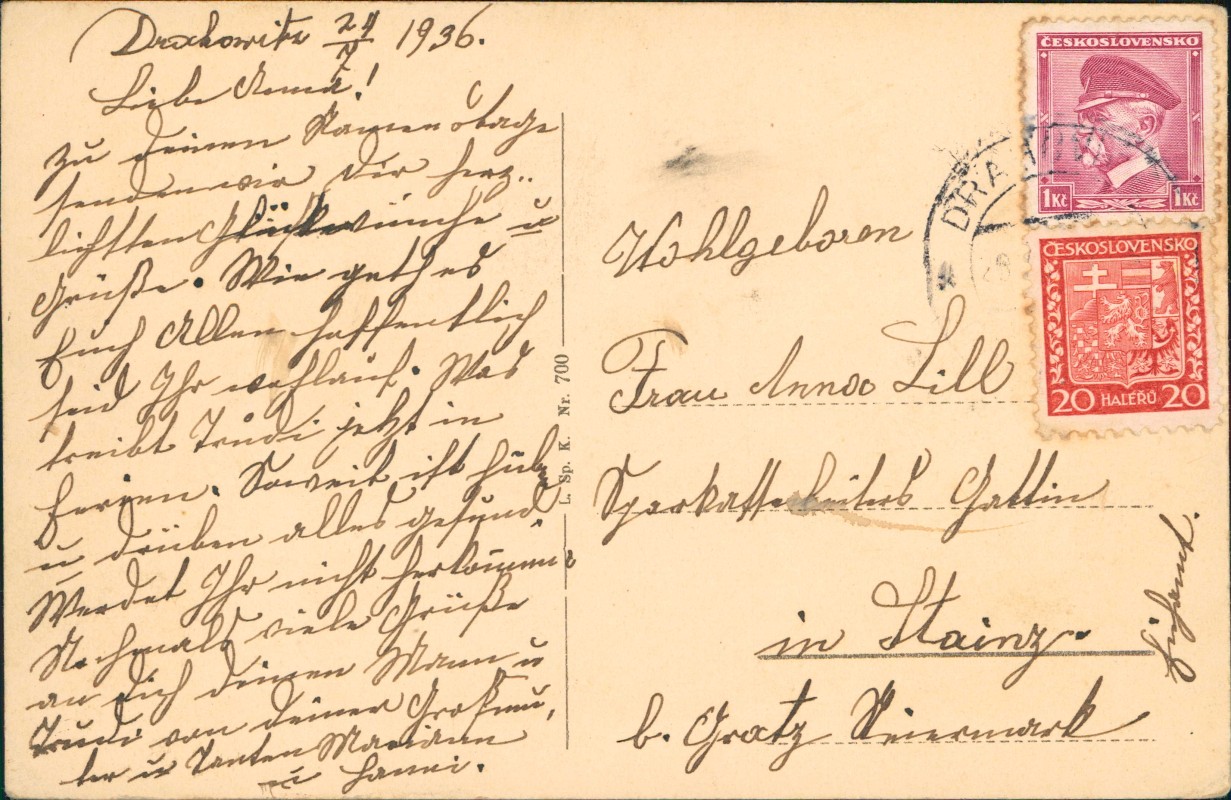 Drahowitz 24/7 1936.
Liebe Anna!
Zu deinen Namenstage
senden wir Dir herz-
lichsten Glückwünsche u
Grüße. Wie geth es
Euch Allen hoffentlich
seid Ihr wohlauf. Was
treibt Trudi jetzt in
Ferien. Soweit ist hüb
u drüben alles gesund.
Werdet Ihr nicht herkommen
Nochmals viele Grüße
an dich deinen Mann u
Trudi von deiner Großmu,
ter u Tanten Mariann
u Hanni.
L. Sp. K. Nr. 700
ČESKOSLOVENSKO
1 Kč 1 Kč
ČESKOSLOVENSKO
20 HALÉŘŮ 20
Wohlgeboren
Frau Anna Lill
Sparkasseleiters Gattin
in Stainz
b. Gratz Steiermark